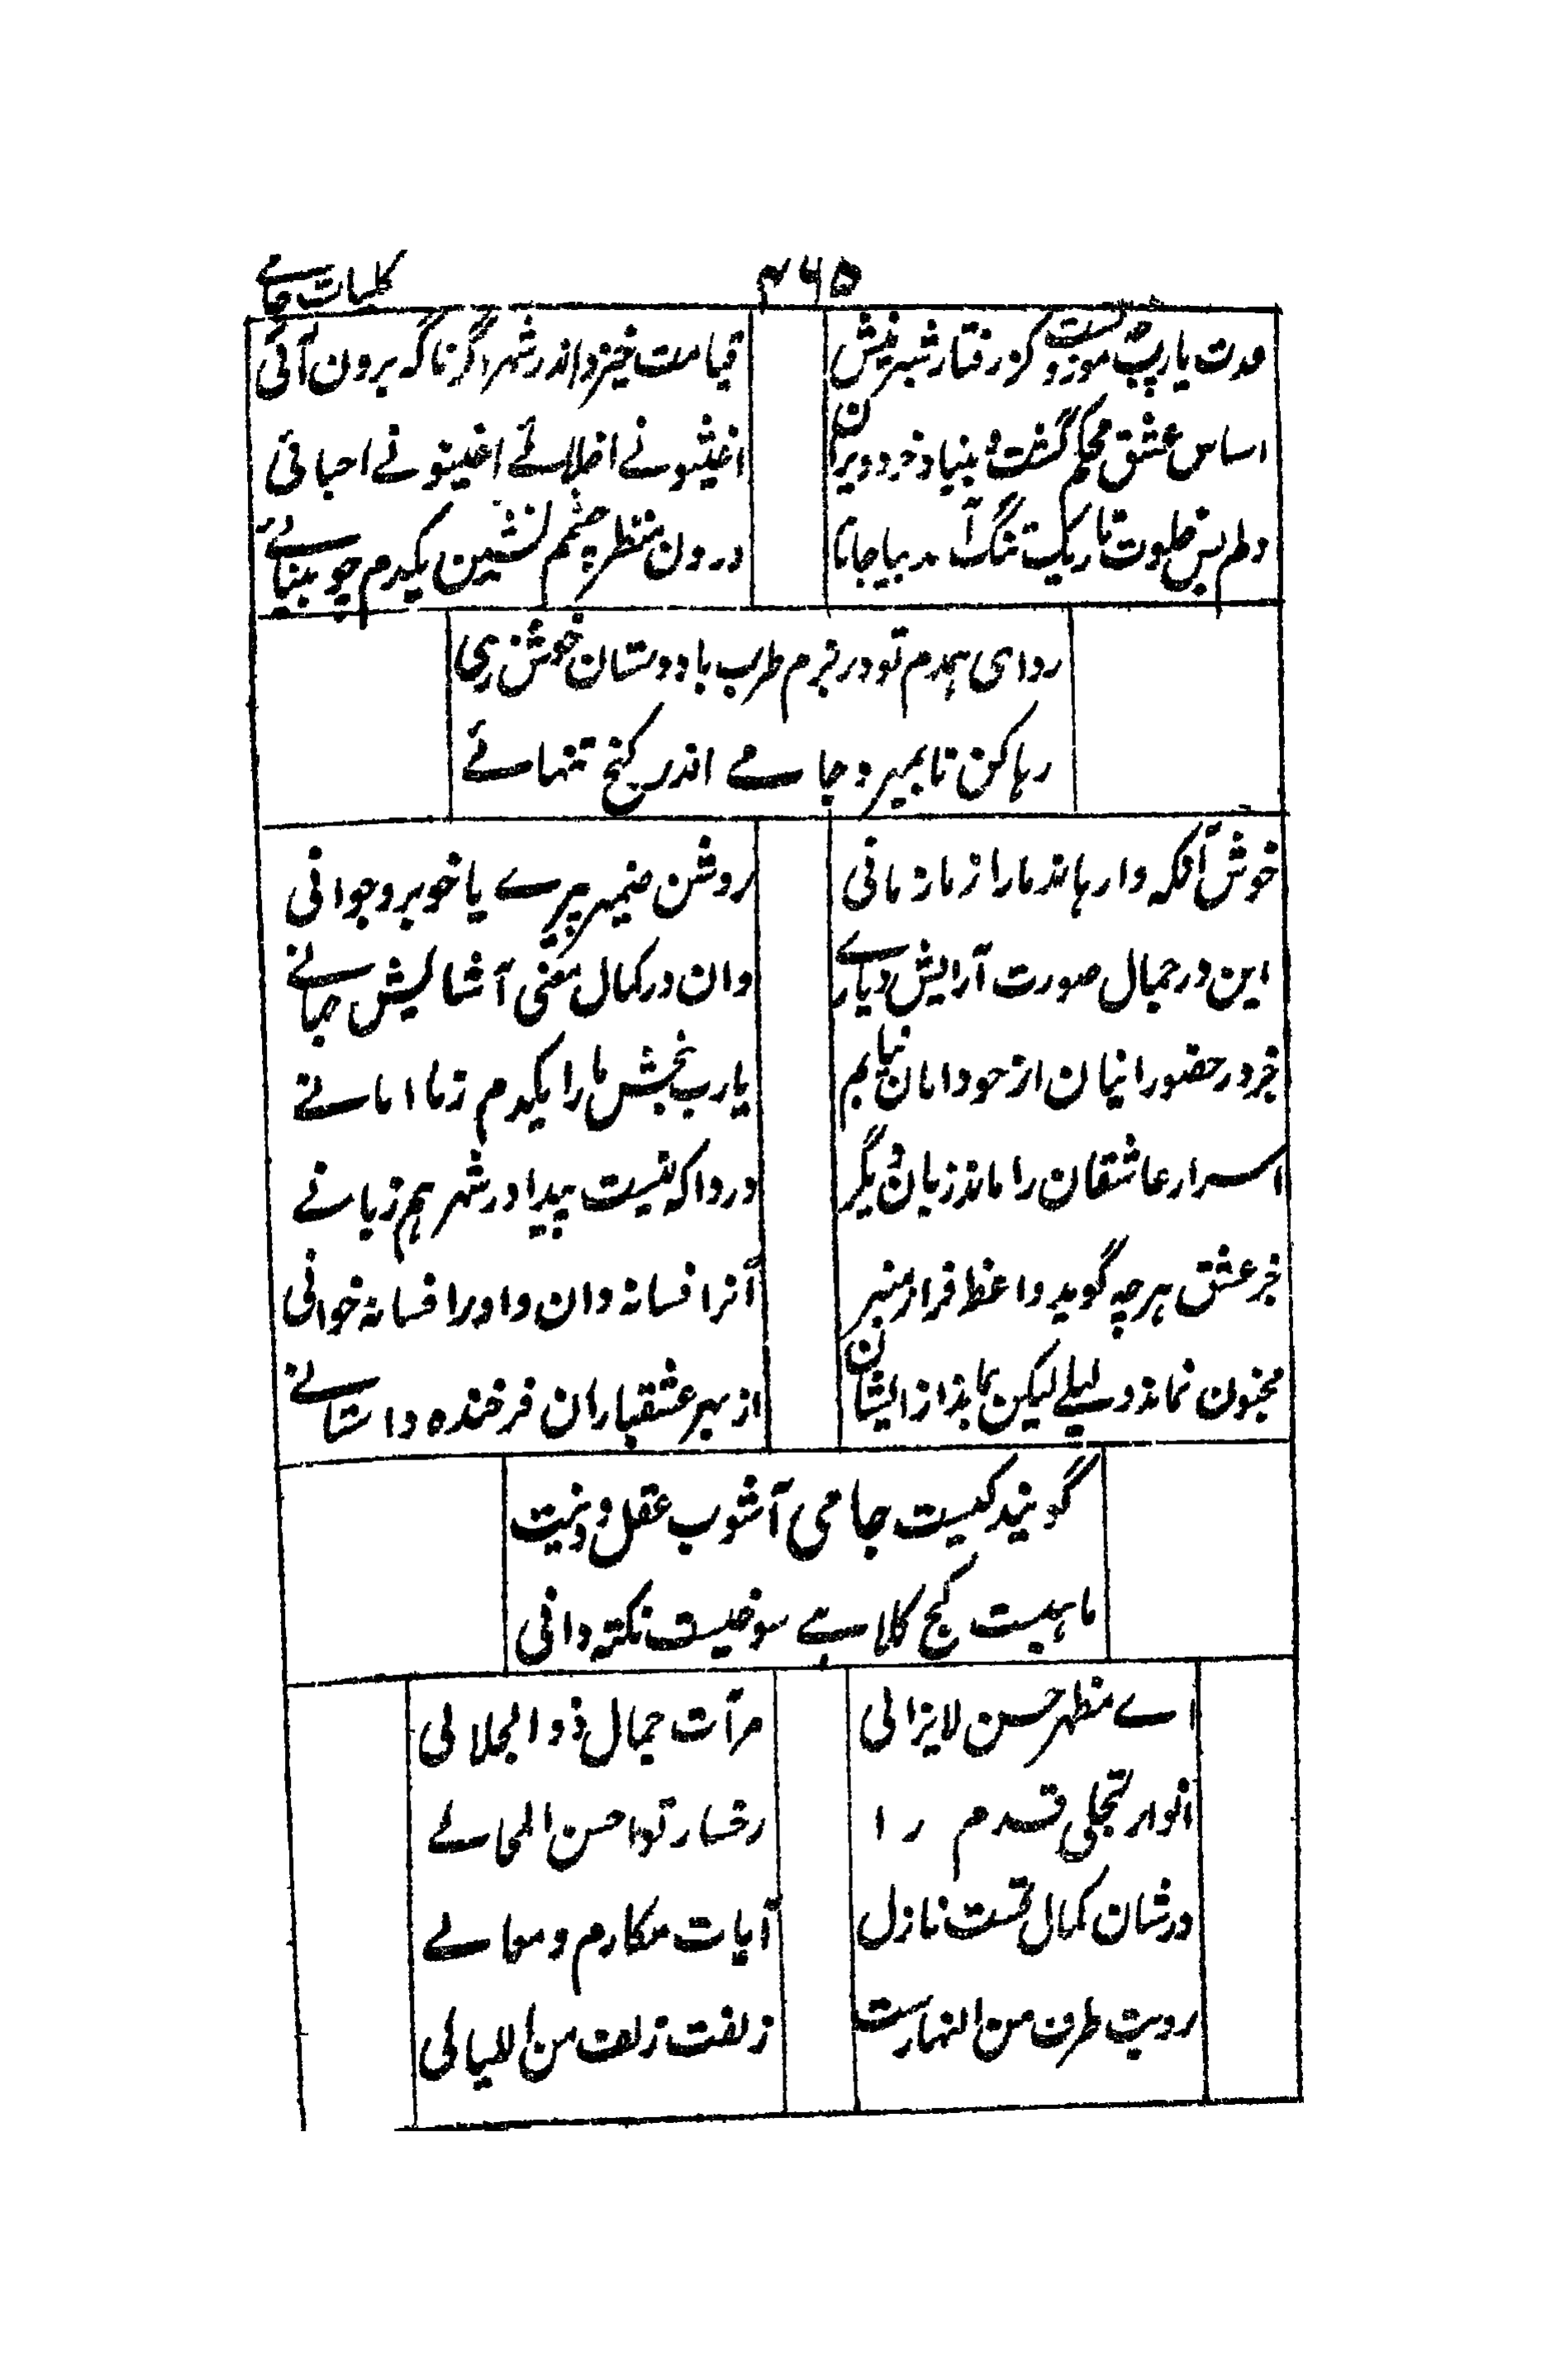 کلیات جامے
۴۶۵
قدت یارب چہ موزونست کز رفتار شیرینش
قیامت خیزد اندر شہر اگر ناگہ برون آئی
اساس عشق محکم گشت و بنیاد خرد ویران
اغیثونے اخلائے اغینونے احبائی
دلم بس خلوت تاریک تنگ آمد بیا جانا
درون منظر چشمم نشین یکدم چو بینائے
رو ای ہمدم تو در بزم طرب با دوستان خوش زی
رہا کن تا بمیرد جامے اندر کنج تنہائے
خوش آنکہ وارہاند ما را ز ما زمانی
روشن ضمیر پیرے یا خوبرو جوانی
این در جمال صورت آرایش دیارے
وان در کمال معنی آشایش جہانے
جز در حضور اینان از خود امان نیابم
یارب بخش ما را یکدم ز ما امانے
اسرار عاشقان را ماند زبان دیگر
دردا کہ نیست پیدا در شہر ہم زبانے
جز عشق ہرچہ گوید واعظ فراز منبر
آنرا فسانہ دان و او را فسانہ خوانی
مجنون نماند و لیلے لیکن بماند از ایشان
از بہر عشقبازان فرخندہ داستانے
گویند کیست جامی آشوب عقل و دینت
ماہیست کج کلاہے سوخیست نکتہ دانی
اے مظہر حسن لایزالی
مرآت جمال ذوالجلالی
انوار تجلی قدم را
رخسار تو احسن المجالے
در شان کمال تست نازل
آیات مکارم و معالے
رویت طرف من النہارست
زلفت زلف من اللیالی